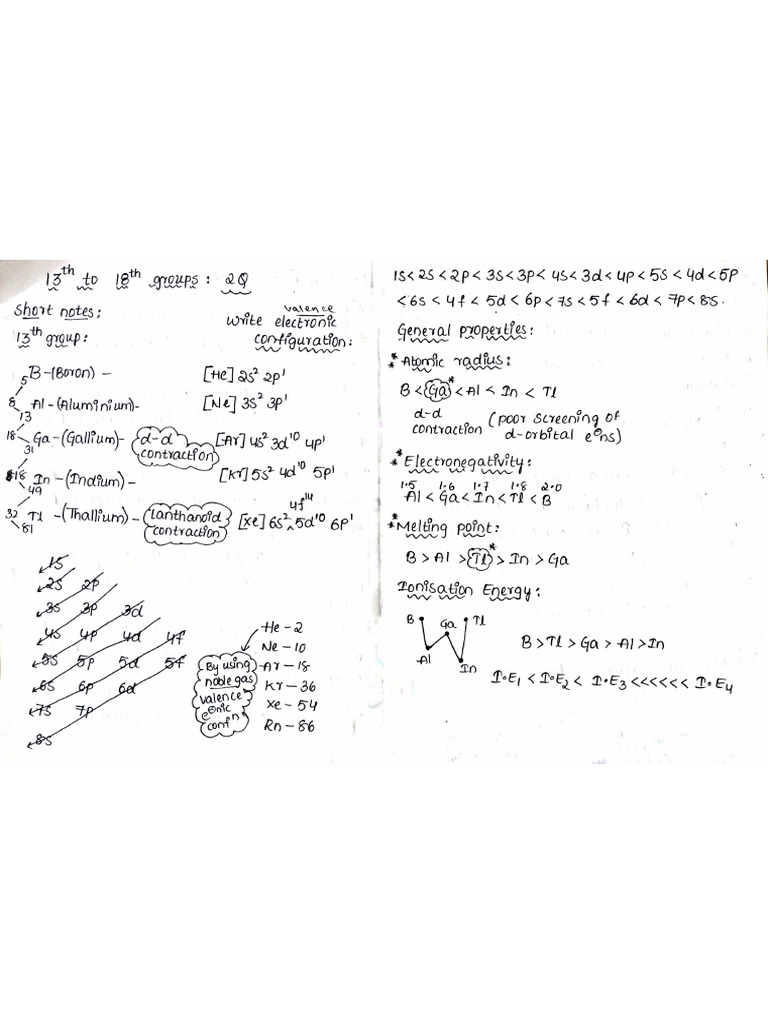 13th to 18th groups : 2Q
Short notes:
13th group:
write valence electronic configuration:
B-(Boron) - [He] 2s² 2p¹
5
8 Al-(Aluminium)- [Ne] 3s² 3p¹
13
18 Ga-(Gallium)- d-d contraction [Ar] 4s² 3d¹⁰ 4p¹
31
18 In-(Indium)- [Kr] 5s² 4d¹⁰ 5p¹
49
32 Tl-(Thallium)- Lanthanoid contraction [Xe] 6s² 4f¹⁴ 5d¹⁰ 6p¹
81
1s
2s 2p
3s 3p 3d
4s 4p 4d 4f
5s 5p 5d 5f
6s 6p 6d
7s 7p
8s
By using
noble gas
valence
e⊖nic
confⁿ
He - 2
Ne - 10
Ar - 18
Kr - 36
Xe - 54
Rn - 86
1s<2s<2p<3s<3p<4s<3d<4p<5s<4d<5p
<6s<4f<5d<6p<7s<5f<6d<7p<8s.
General properties:
* Atomic radius:
B < Ga* < Al < In < Tl
d-d
contraction (poor screening of
d-orbital e⊖ns)
* Electronegativity:
1.5 1.6 1.7 1.8 2.0
Al < Ga < In < Tl < B
* Melting point:
B > Al > Tl* > In > Ga
Ionisation Energy:
B Ga Tl
Al In
B > Tl > Ga > Al > In
I.E₁ < I.E₂ < I.E₃ <<<<<< I.E₄